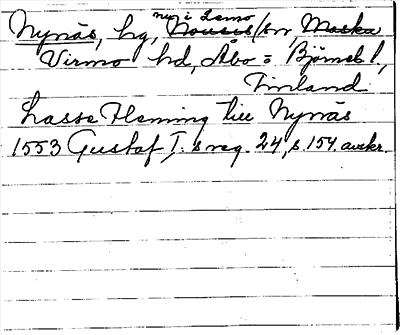 nu i Lemo
Nynäs, hg, Nousis/sn, Maska
Virmo hd, Åbo = Björneb l,
Finland
Lasse Fleming till Nynäs
1553 Gustaf I:s reg. 24, s. 154 avskr.